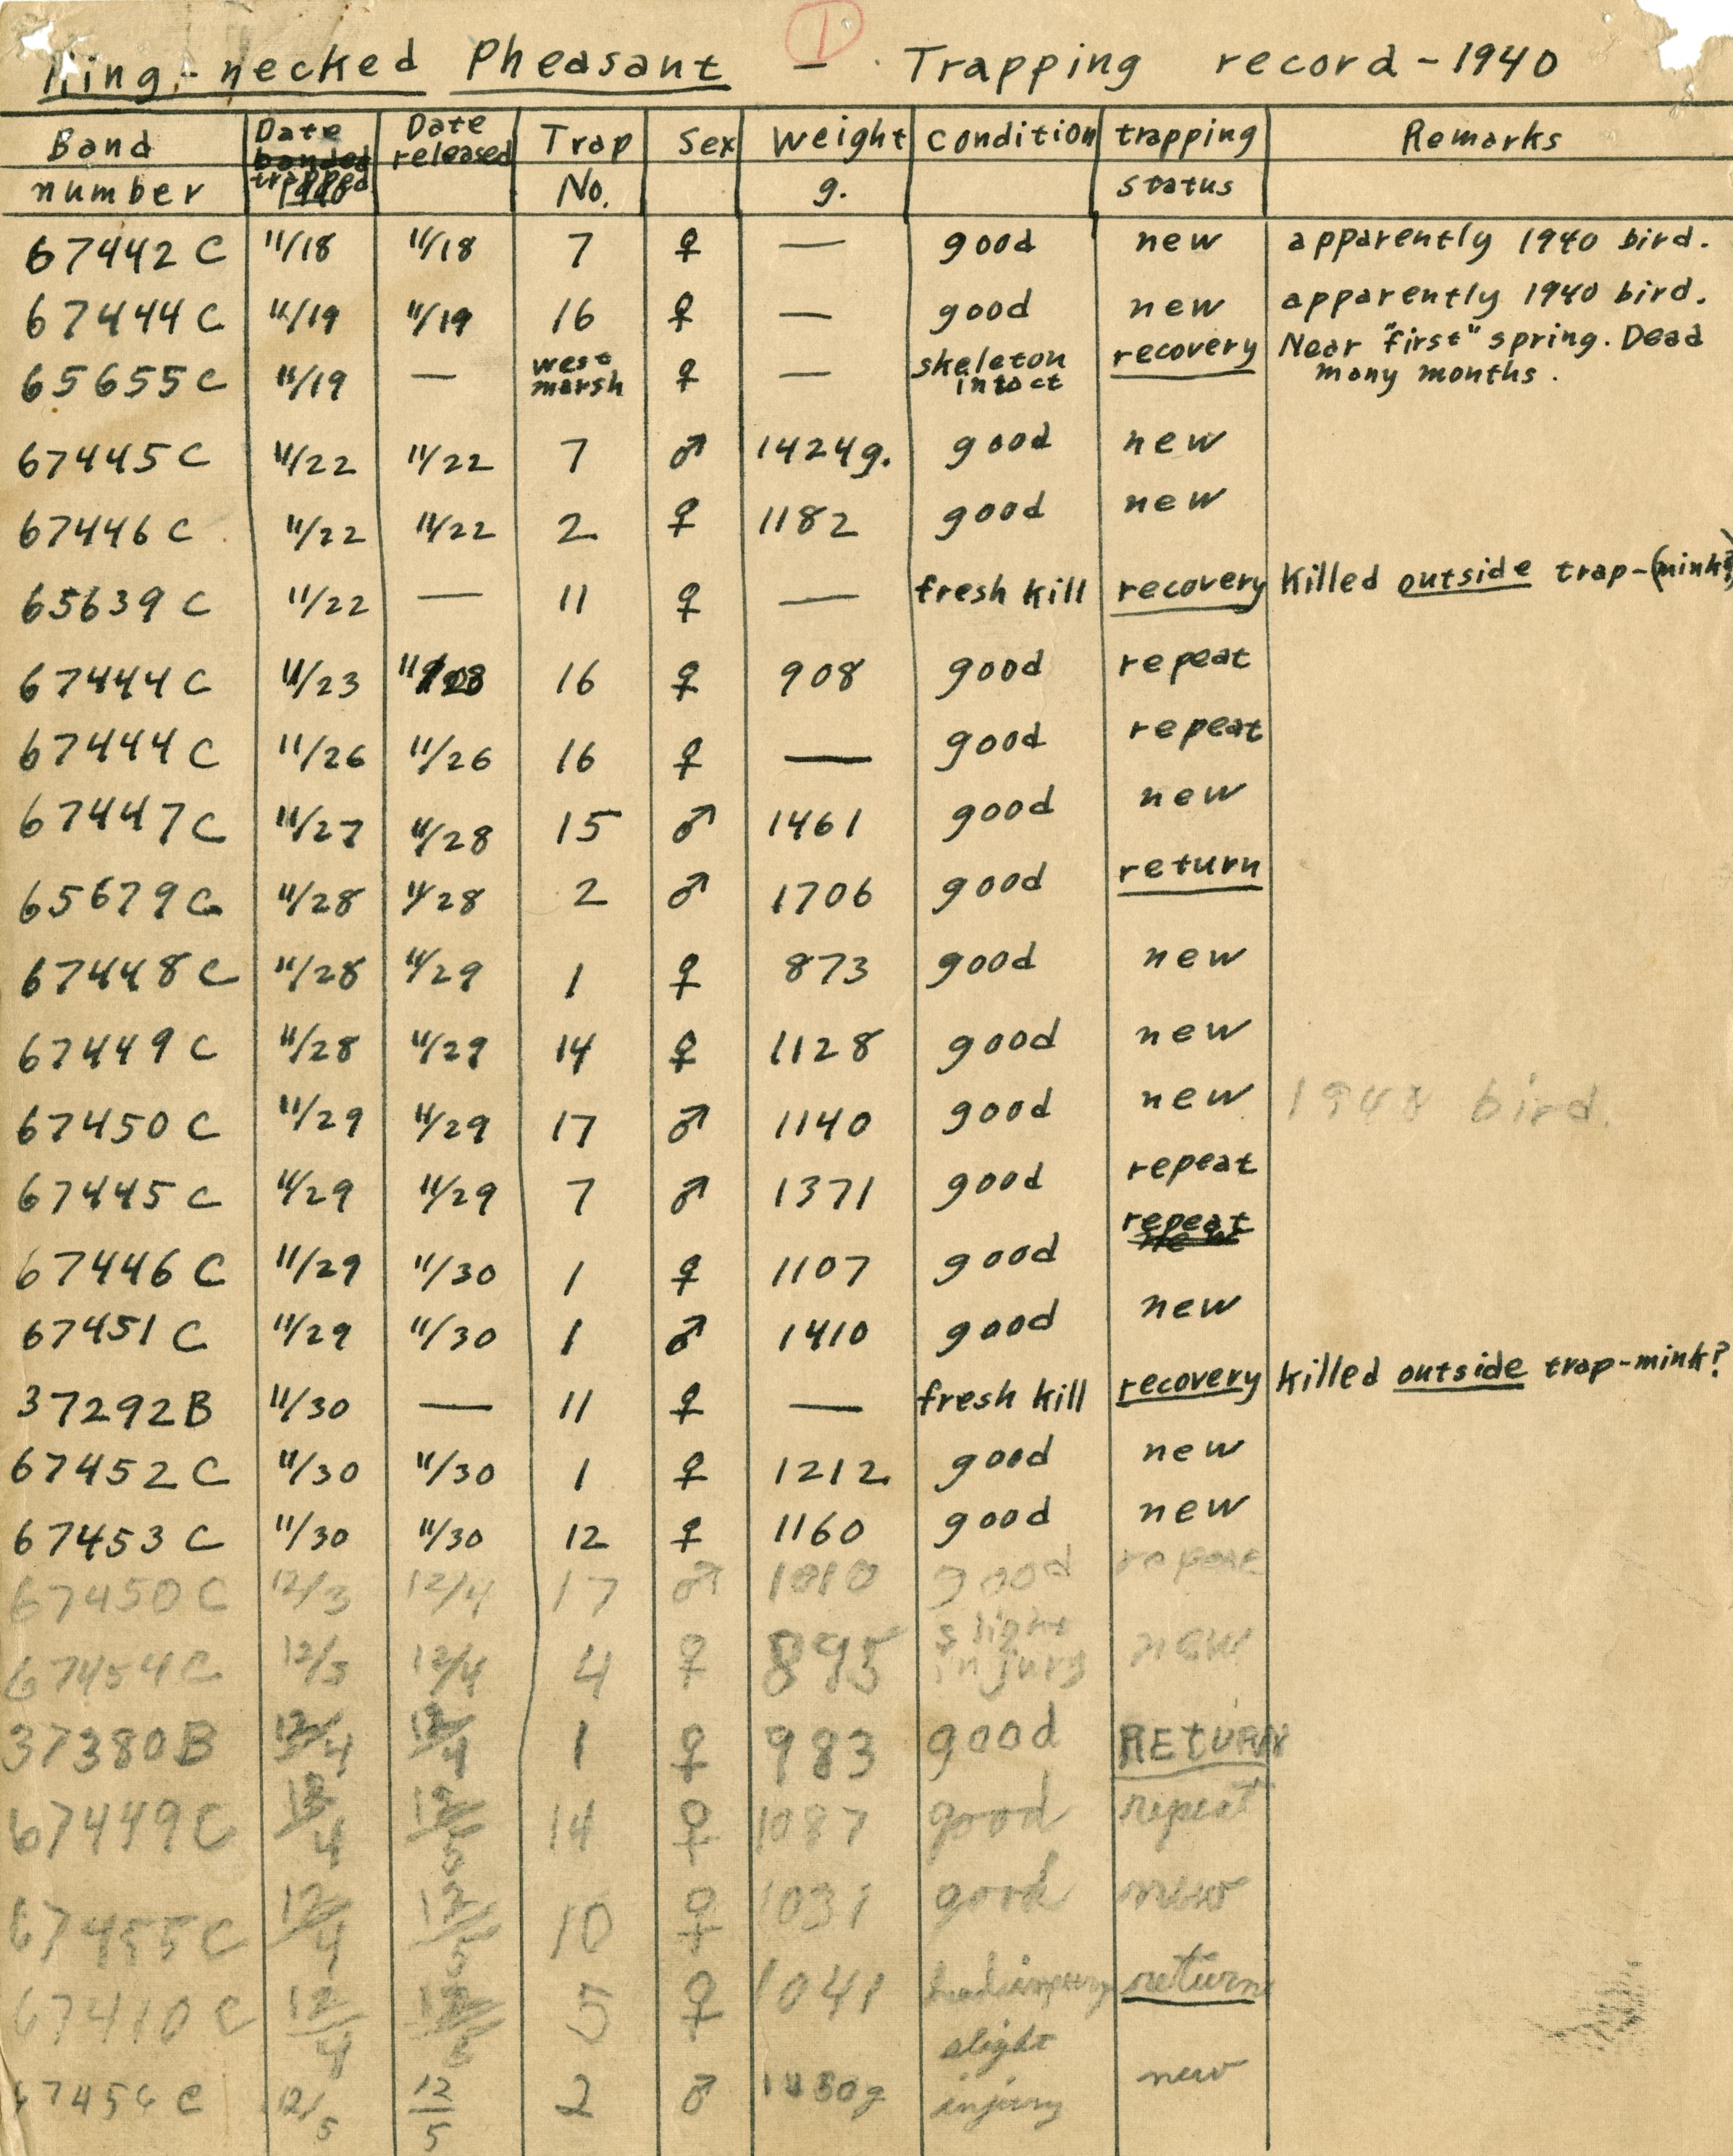 1
King-necked Pheasant — Trapping record-1940
Band number Date banded trapped 1940 Date released Trap No. Sex Weight g. condition trapping status Remarks
67442 C 11/18 11/18 7 ♀ — good new apparently 1940 bird.
67444 C 11/19 11/19 16 ♀ — good new apparently 1940 bird.
65655 C 11/19 — west marsh ♀ — skeleton intact recovery Near "first" spring. Dead many months.
67445 C 11/22 11/22 7 ♂ 1424g. good new
67446 C 11/22 11/22 2 ♀ 1182 good new
65639 C 11/22 — 11 ♀ — fresh kill recovery killed outside trap-(mink?)
67444 C 11/23 11/23 16 ♀ 908 good repeat
67444 C 11/26 11/26 16 ♀ — good repeat
67447 C 11/27 11/28 15 ♂ 1461 good new
65679 C 11/28 11/28 2 ♂ 1706 good return
67448 C 11/28 11/29 1 ♀ 873 good new
67449 C 11/28 11/29 14 ♀ 1128 good new
67450 C 11/29 11/29 17 ♂ 1140 good new bird.
67445 C 11/29 11/29 7 ♂ 1371 good repeat
67446 C 11/29 11/30 1 ♀ 1107 good repeat new
67451 C 11/29 11/30 1 ♂ 1410 good new
37292 B 11/30 — 11 ♀ — fresh kill recovery killed outside trap-mink?
67452 C 11/30 11/30 1 ♀ 1212 good new
67453 C 11/30 11/30 12 ♀ 1160 good new
67450 C 12/3 12/4 17 ♂ 1010 good repeat
67454 C 12/3 12/4 4 ♀ 895 slight injury new
37380 B 12/4 12/4 1 ♀ 983 good RETURN
67449 C 12/4 12/5 14 ♀ 1087 good repeat
67455 C 12/4 12/5 10 ♀ 1031 good new
67410 C 12/4 12/5 5 ♀ 1041 return
67456 C 12/5 12/5 2 ♂ slight injury new